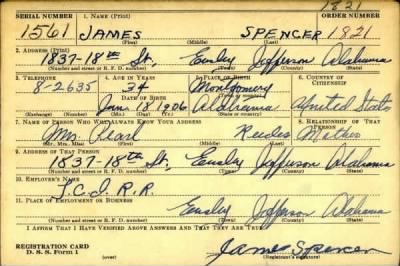 1821
SERIAL NUMBER 1. NAME (Print) ORDER NUMBER
1561 JAMES SPENCER 1821
(First) (Middle) (Last)
2. ADDRESS (Print)
1837-18th St, Ensley Jefferson Alabama
(Number and street or R. F. D. number) (Town) (County) (State)
3. TELEPHONE 4. AGE IN YEARS 5. PLACE OF BIRTH 6. COUNTRY OF CITIZENSHIP
8-2635 34 Montgomery
DATE OF BIRTH (Town or county)
Jan 18 1906 Alabama United States
(Exchange) (Number) (Mo.) (Day) (Yr.) (State or country)
7. NAME OF PERSON WHO WILL ALWAYS KNOW YOUR ADDRESS 8. RELATIONSHIP OF THAT PERSON
Mrs. Pearl Mother
(Mr., Mrs., Miss) (First) (Middle) (Last)
9. ADDRESS OF THAT PERSON
1837-18th St, Ensley Jefferson Alabama
(Number and street or R. F. D. number) (Town) (County) (State)
10. EMPLOYER'S NAME
T.C.I. R.R
11. PLACE OF EMPLOYMENT OR BUSINESS
Ensley Jefferson Alabama
(Number and street or R. F. D. number) (Town) (County) (State)
I AFFIRM THAT I HAVE VERIFIED ABOVE ANSWERS AND THAT THEY ARE TRUE.
REGISTRATION CARD
D. S. S. Form 1 (over) James Spencer
(Registrant's signature)